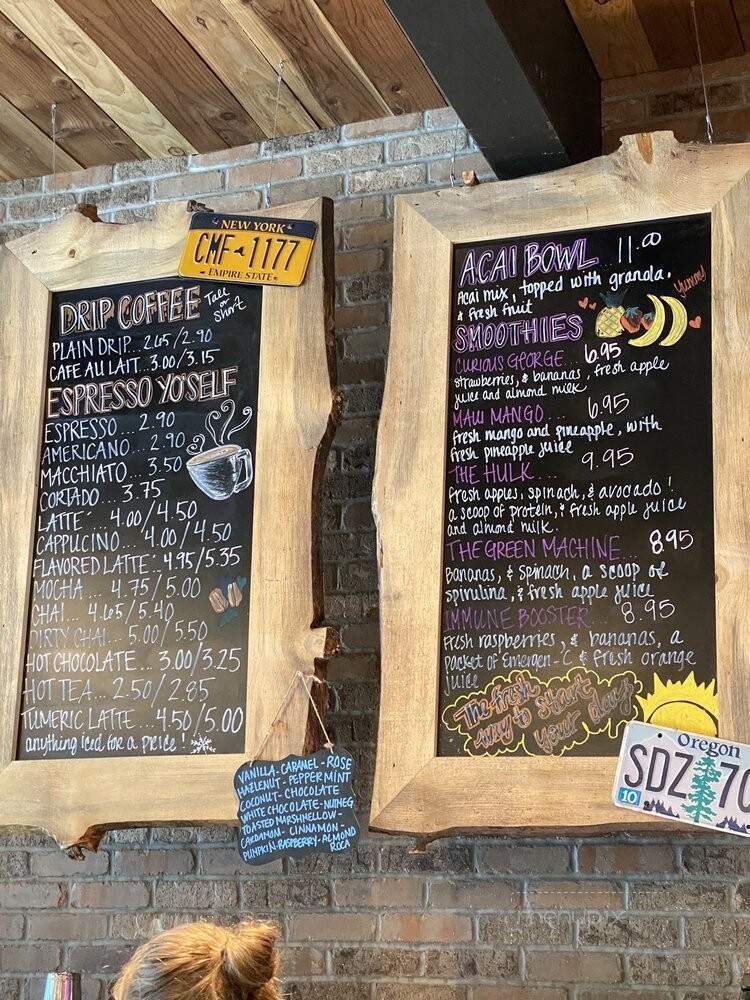 NEW YORK
CMF-1177
EMPIRE STATE
DRIP COFFEE Tall or Short
PLAIN DRIP...2.65/2.90
CAFE AU LAIT...3.00/3.15
ESPRESSO YO'SELF
ESPRESSO...2.90
AMERICANO...2.90
MACCHIATO...3.50
CORTADO...3.75
LATTE...4.00/4.50
CAPPUCCINO...4.00/4.50
FLAVORED LATTE...4.95/5.35
MOCHA...4.75/5.00
CHAI...4.65/5.40
DIRTY CHAI...5.00/5.50
HOT CHOCOLATE...3.00/3.25
HOT TEA...2.50/2.85
TUMERIC LATTE...4.50/5.00
anything iced for a price!
VANILLA-CARAMEL-ROSE
HAZLENUT-PEPPERMINT
COCONUT-CHOCOLATE
WHITE CHOCOLATE-NUTMEG
TOASTED MARSHMELLOW-
CARDAMON-CINNAMON-
PUMPKIN-RASPBERRY-ALMOND
ROCA
ACAI BOWL...11.00
Acai mix, topped with granola,
& fresh fruit
Yummy
SMOOTHIES
CURIOUS GEORGE...6.95
strawberries, & bananas, fresh apple
juice and almond milk
MAUI MANGO...6.95
fresh mango and pineapple, with
fresh pineapple juice
THE HULK...9.95
Fresh apples, spinach, & avocado!
a scoop of protein, & fresh apple juice
and almond milk.
THE GREEN MACHINE...8.95
Bananas, & spinach, a scoop of
spirulina, & fresh apple juice
IMMUNE BOOSTER...8.95
Fresh raspberries, & bananas, a
packet of Emergen-C & fresh orange
juice
The fresh
way to start
your day!
Oregon
SDZ 70
10
menupix